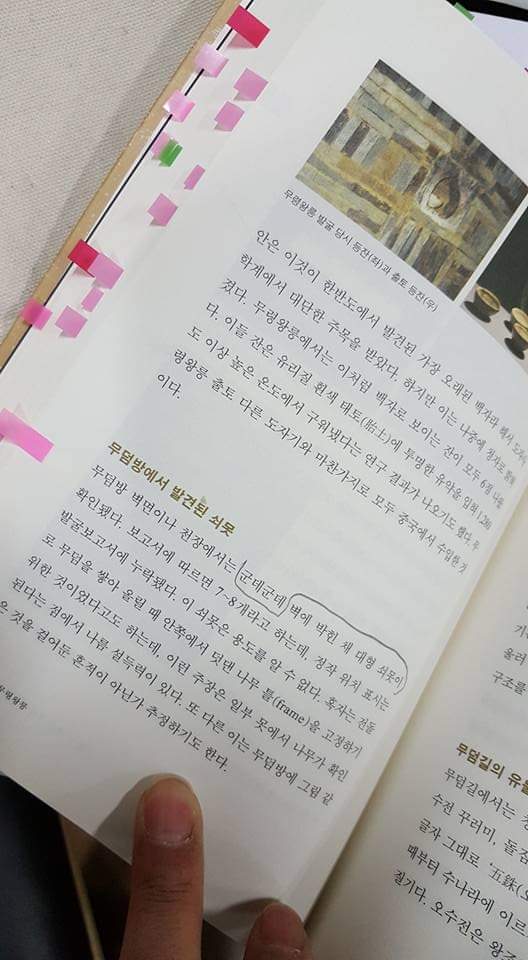 무령왕릉 발굴 당시 등잔(좌)과 출토 등잔(우)
안은 이것이 한반도에서 발견된 가장 오래된 백자라 해서 도자사
학계에서 대단한 주목을 받았다. 하지만 이는 나중에 청자로
졌다. 무령왕릉에서는 이처럼 백자로 보이는 잔이 모두 6점 나왔
다. 이들 잔은 유리질 흰색 태토(胎土)에 투명한 유약을 입혀 1,200
도 이상 높은 온도에서 구워냈다는 연구 결과가 나오기도 했다. 무
령왕릉 출토 다른 도자기와 마찬가지로 모두 중국에서 수입한 것
이다.
무덤방에서 발견된 쇠못
무덤방 벽면이나 천장에서는 군데군데 벽에 박힌 채 대형 쇠못이
확인됐다. 보고서에 따르면 7~8개라고 하는데, 정작 위치 표시는
발굴보고서에 누락됐다. 이 쇠못은 용도를 알 수 없다. 혹자는 전돌
로 무덤을 쌓아 올릴 때 안쪽에서 덧댄 나무 틀(frame)을 고정하기
위한 것이었다고도 하는데, 이런 주장은 일부 못에서 나무가 확인
된다는 점에서 나름 설득력이 있다. 또 다른 이는 무덤방에 그림 같
은 것을 걸어둔 흔적이 아닌가 추정하기도 한다.
무령왕릉
울러
구조를
무덤길의 유물
무덤길에서는
수전 꾸러미, 돌짐
글자 그대로 '五銖(오
때부터 수나라에 이르
질기다. 오수전은 왕